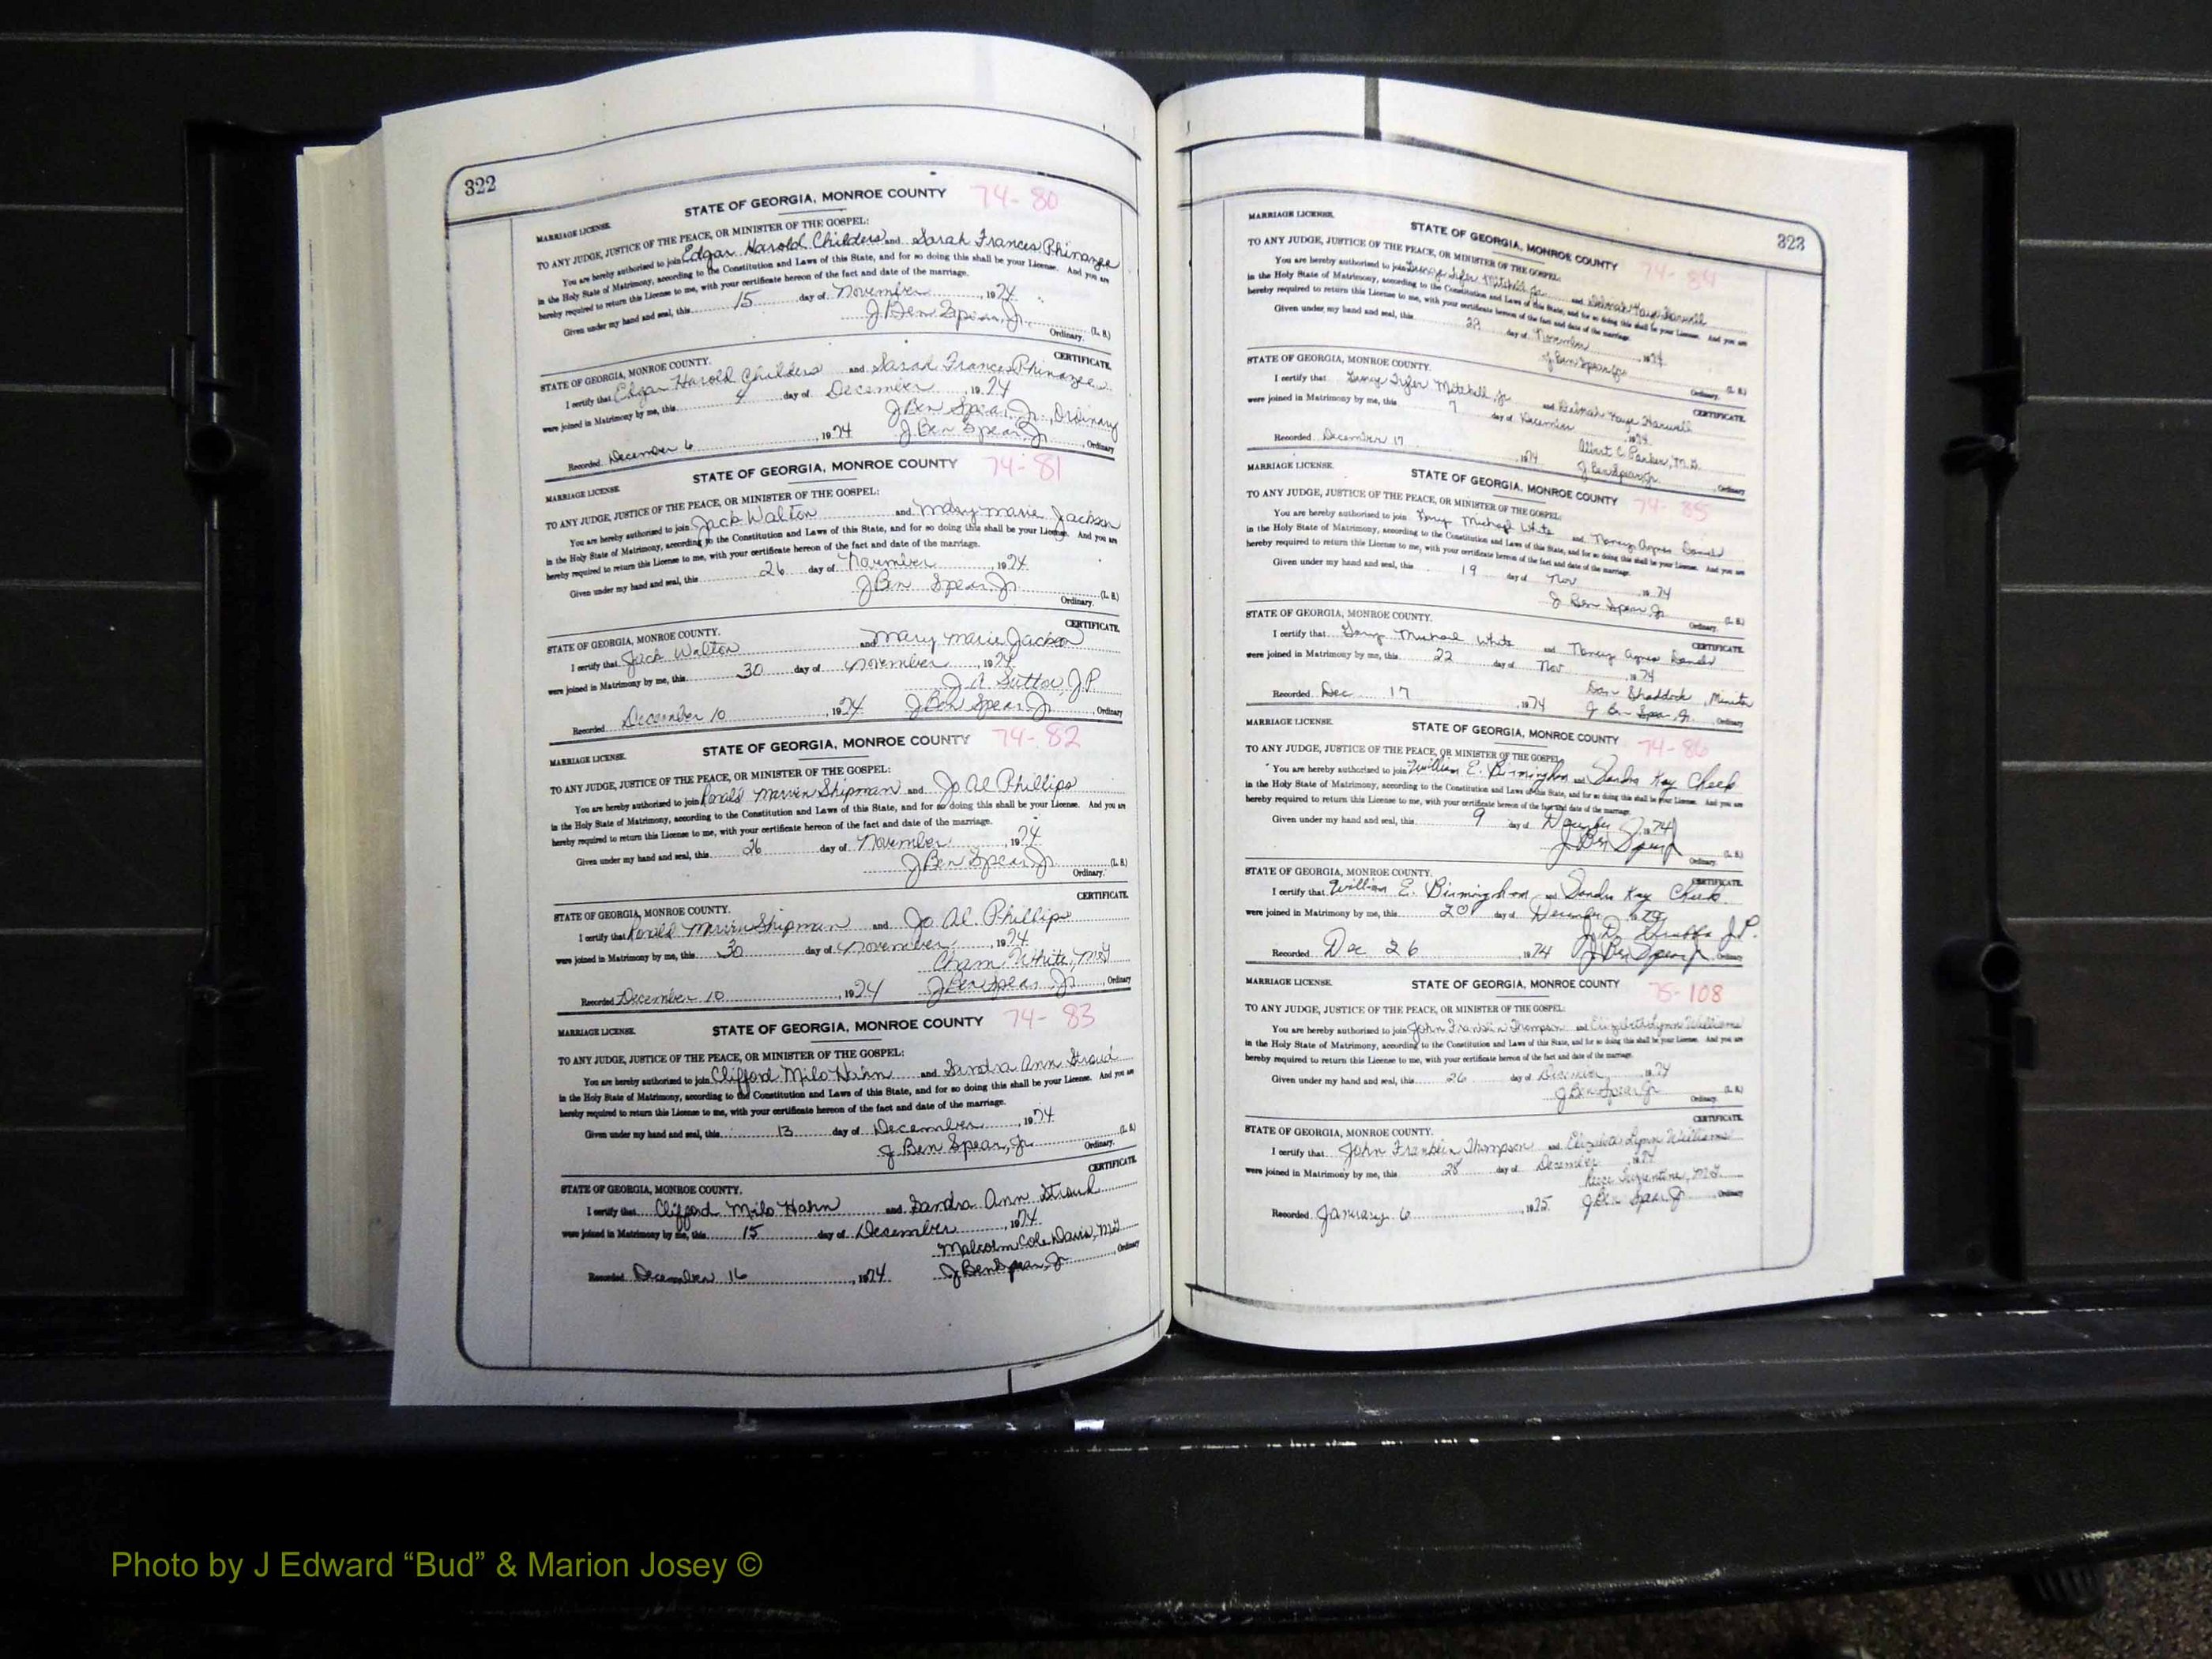 322
STATE OF GEORGIA, MONROE COUNTY 74-80
MARRIAGE LICENSE.
TO ANY JUDGE, JUSTICE OF THE PEACE, OR MINISTER OF THE GOSPEL:
You are hereby authorized to join Edgar Harold Childers and Sarah Frances Phinazee
in the Holy State of Matrimony, according to the Constitution and Laws of this State, and for so doing this shall be your License. And you are
hereby required to return this License to me, with your certificate hereon of the fact and date of the marriage.
Given under my hand and seal, this 15 day of November, 1974
J Ben Spear, Jr. (L. S.)
Ordinary.
CERTIFICATE.
STATE OF GEORGIA, MONROE COUNTY.
I certify that Edgar Harold Childers and Sarah Frances Phinazee
were joined in Matrimony by me, this 4 day of December, 1974
J Ben Spear, Jr., Ordinary
Recorded December 6, 1974 J Ben Spear, Jr, Ordinary
STATE OF GEORGIA, MONROE COUNTY 74-81
MARRIAGE LICENSE.
TO ANY JUDGE, JUSTICE OF THE PEACE, OR MINISTER OF THE GOSPEL:
You are hereby authorized to join Jack Walton and Mary Marie Jackson
in the Holy State of Matrimony, according to the Constitution and Laws of this State, and for so doing this shall be your License. And you are
hereby required to return this License to me, with your certificate hereon of the fact and date of the marriage.
Given under my hand and seal, this 26 day of November, 1974
J Ben Spear, Jr (L. S.)
Ordinary.
CERTIFICATE.
STATE OF GEORGIA, MONROE COUNTY.
I certify that Jack Walton and Mary Marie Jackson
were joined in Matrimony by me, this 30 day of November, 1974
J A Sutton J.P.
Recorded December 10, 1974 J Ben Spear Jr, Ordinary
STATE OF GEORGIA, MONROE COUNTY 74-82
MARRIAGE LICENSE.
TO ANY JUDGE, JUSTICE OF THE PEACE, OR MINISTER OF THE GOSPEL:
You are hereby authorized to join Ronald Mervin Shipman and Jo Al Phillips
in the Holy State of Matrimony, according to the Constitution and Laws of this State, and for so doing this shall be your License. And you are
hereby required to return this License to me, with your certificate hereon of the fact and date of the marriage.
Given under my hand and seal, this 26 day of November, 1974
J Ben Spear, Jr (L. S.)
Ordinary.
CERTIFICATE.
STATE OF GEORGIA, MONROE COUNTY.
I certify that Ronald Mervin Shipman and Jo Al Phillips
were joined in Matrimony by me, this 30 day of November, 1974
Cham White, MG
Recorded December 10, 1974 J Ben Spear Jr, Ordinary
STATE OF GEORGIA, MONROE COUNTY 74-83
MARRIAGE LICENSE.
TO ANY JUDGE, JUSTICE OF THE PEACE, OR MINISTER OF THE GOSPEL:
You are hereby authorized to join Clifford Milo Hahn and Sandra Ann Stroud
in the Holy State of Matrimony, according to the Constitution and Laws of this State, and for so doing this shall be your License. And you are
hereby required to return this License to me, with your certificate hereon of the fact and date of the marriage.
Given under my hand and seal, this 13 day of December, 1974
J Ben Spear, Jr (L. S.)
Ordinary.
CERTIFICATE.
STATE OF GEORGIA, MONROE COUNTY.
I certify that Clifford Milo Hahn and Sandra Ann Stroud
were joined in Matrimony by me, this 15 day of December, 1974
Malcolm Cole Davis, MG
Recorded December 16, 1974 J Ben Spear, Jr, Ordinary
323
MARRIAGE LICENSE.
STATE OF GEORGIA, MONROE COUNTY 74-84
TO ANY JUDGE, JUSTICE OF THE PEACE, OR MINISTER OF THE GOSPEL:
You are hereby authorized to join Mitchell Jr. and Deborah Faye Harwell
in the Holy State of Matrimony, according to the Constitution and Laws of this State, and for so doing this shall be your License. And you are
hereby required to return this License to me, with your certificate hereon of the fact and date of the marriage.
Given under my hand and seal, this 29 day of November, 1974
J Ben Spear Jr (L. S.)
Ordinary.
STATE OF GEORGIA, MONROE COUNTY.
CERTIFICATE.
I certify that Mitchell, Jr and Deborah Faye Harwell
were joined in Matrimony by me, this 7 day of December, 1974
Albert C. Parker, M.G.
Recorded December 17, 1974 J Ben Spear Jr, Ordinary
MARRIAGE LICENSE.
STATE OF GEORGIA, MONROE COUNTY 74-85
TO ANY JUDGE, JUSTICE OF THE PEACE, OR MINISTER OF THE GOSPEL:
You are hereby authorized to join Michael White and Nancy Agnes
in the Holy State of Matrimony, according to the Constitution and Laws of this State, and for so doing this shall be your License. And you are
hereby required to return this License to me, with your certificate hereon of the fact and date of the marriage.
Given under my hand and seal, this 19 day of Nov, 1974
J Ben Spear, Jr (L. S.)
Ordinary.
STATE OF GEORGIA, MONROE COUNTY.
CERTIFICATE.
I certify that Michael White and Nancy Agnes
were joined in Matrimony by me, this 22 day of Nov, 1974
Don Shaddock, Minister
Recorded Dec 17, 1974 J Ben Spear, Jr., Ordinary
MARRIAGE LICENSE.
STATE OF GEORGIA, MONROE COUNTY 74-86
TO ANY JUDGE, JUSTICE OF THE PEACE, OR MINISTER OF THE GOSPEL:
You are hereby authorized to join William E. Birmingham and Sandra Kay Cheek
in the Holy State of Matrimony, according to the Constitution and Laws of this State, and for so doing this shall be your License. And you are
hereby required to return this License to me, with your certificate hereon of the fact and date of the marriage.
Given under my hand and seal, this 9 day of December, 1974
J Ben Spear Jr (L. S.)
Ordinary.
STATE OF GEORGIA, MONROE COUNTY.
CERTIFICATE.
I certify that William E. Birmingham and Sandra Kay Cheek.
were joined in Matrimony by me, this 20 day of December 1974
J.P.
Recorded Dec 26, 1974 J Ben Spear Jr, Ordinary
MARRIAGE LICENSE.
STATE OF GEORGIA, MONROE COUNTY 75-108
TO ANY JUDGE, JUSTICE OF THE PEACE, OR MINISTER OF THE GOSPEL:
You are hereby authorized to join John Franklin Thompson and Elizabeth Lynn Williams
in the Holy State of Matrimony, according to the Constitution and Laws of this State, and for so doing this shall be your License. And you are
hereby required to return this License to me, with your certificate hereon of the fact and date of the marriage.
Given under my hand and seal, this 26 day of December, 1974
J Ben Spear Jr (L. S.)
Ordinary.
CERTIFICATE.
STATE OF GEORGIA, MONROE COUNTY.
I certify that John Franklin Thompson and Elizabeth Lynn Williams
were joined in Matrimony by me, this 28 day of December, 1974
Reece Turrentine, M.G.
Recorded January 6, 1975. J Ben Spear Jr, Ordinary
Photo by J Edward “Bud” & Marion Josey ©